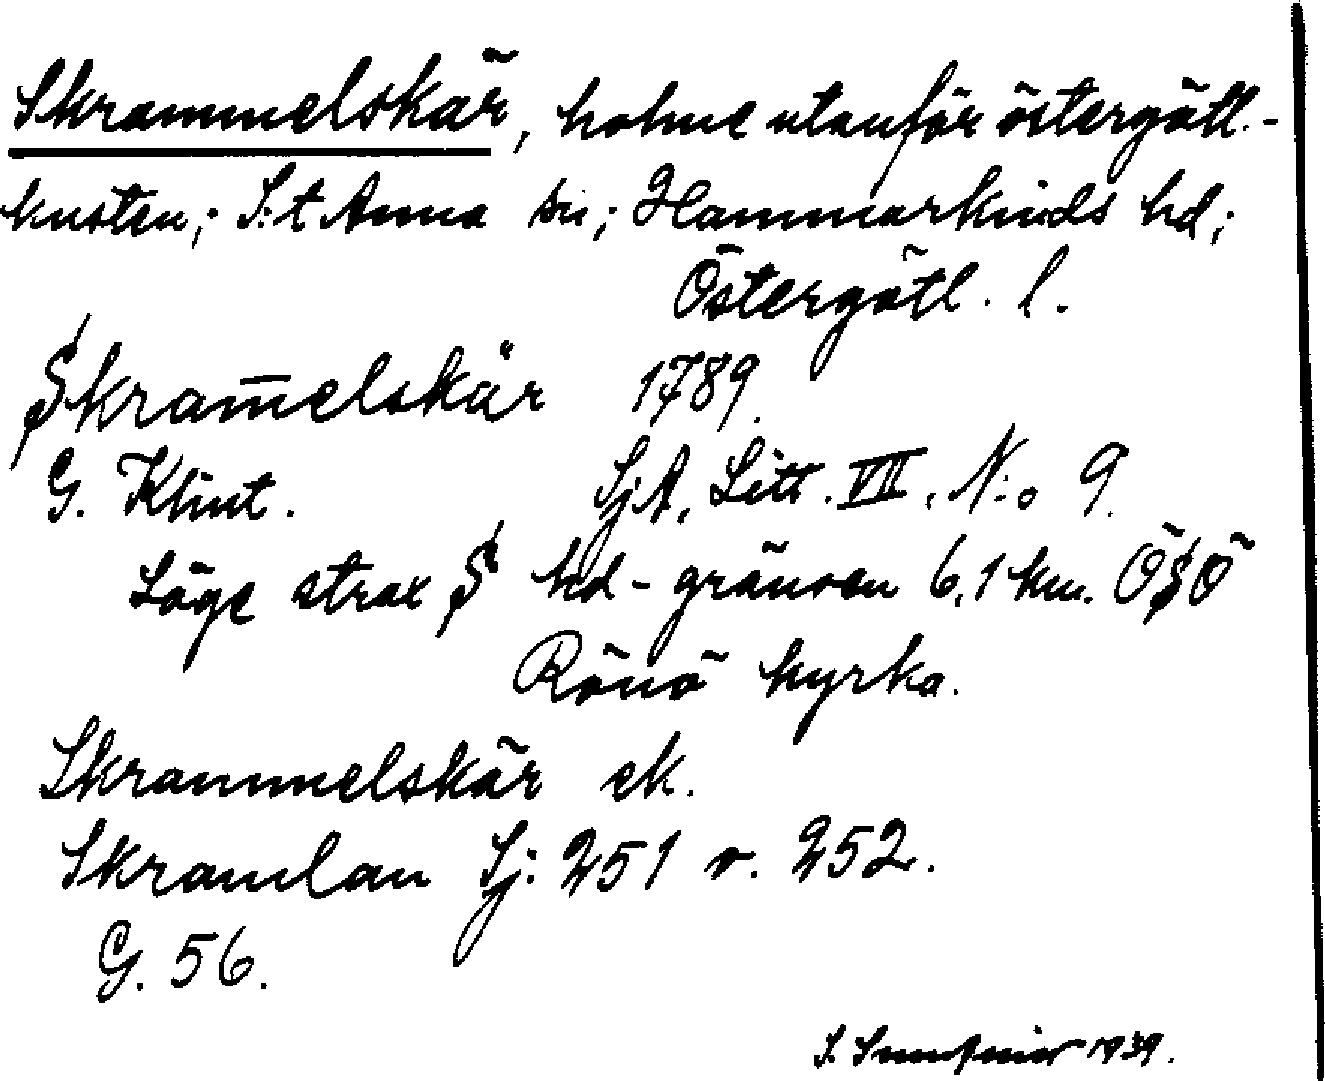 Skrammelskär, holme utanför östergötl.-
kusten; S:t Anna sn; Hammarkinds hd;
Östergötl. l.
Skram̄elskär 1789.
G. Klint. SjA, Litt. VII. N:o 9.
Läge strax S hd-gränsen 6,1 km. ÖSÖ
Rönö kyrka.
Skrammelskär ek.
Skramlan Sj: 251 o. 252.
G. 56.
S. 1939.